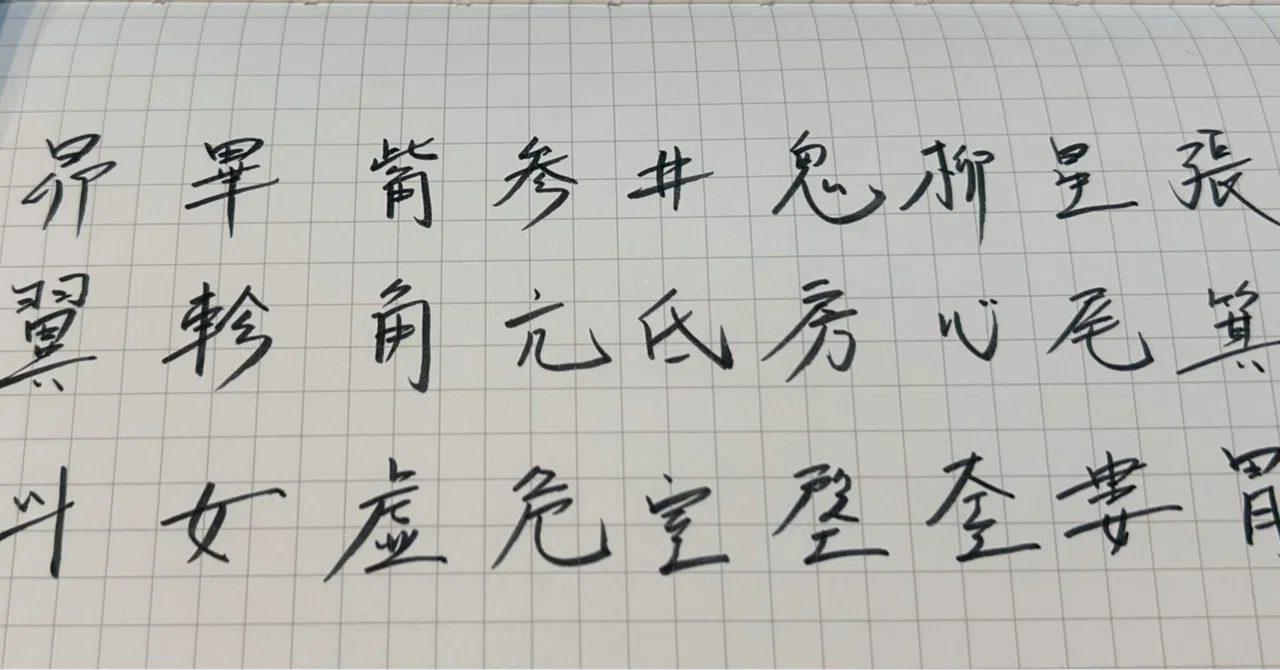 昴 畢 觜 参 井 鬼 柳 星 張
翼 軫 角 亢 氐 房 心 尾 箕
斗 女 虚 危 室 壁 奎 婁 胃